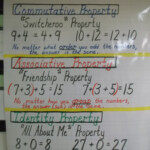 Commutative Property
"Switcheroo" Property
9+4=4+9 10+12=12+10
No matter what order you add the numbers,
the answer is the same.
Associative Property
"Friendship" Property
(7+3)+5=15 7+(3+5)=15
No matter how you group the numbers,
the answer (sum) is the same.
Identity Property
"All About Me" Property
8+0=8 27+0=27